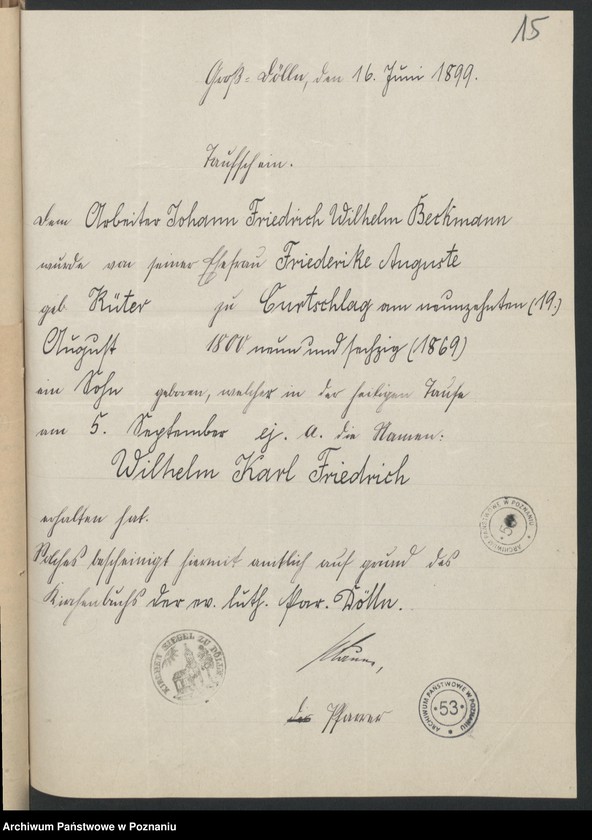 15
Groß-Dölln, den 16. Juni 1899.
Taufschein.
Dem Arbeiter Johann Friedrich Wilhelm Beckmann
wurde von seiner Ehefrau Friederike Auguste
geb. Küter zu Curtschlag am neunzehnten (19.)
August 1800 neun und sechzig (1869)
ein Sohn geboren, welcher in der heiligen Taufe
am 5. September ej. a. die Namen:
Wilhelm Karl Friedrich
erhalten hat.
Solches bescheinigt hiermit amtlich auf grund des
Kirchenbuchs der ev. luth. Par. Dölln.
Pfarrer
KIRCHEN SIEGEL ZU DÖLLN
ARCHIWUM PAŃSTWOWE W POZNANIU
53
ARCHIWUM PAŃSTWOWE W POZNANIU
53
Archiwum Państwowe w Poznaniu